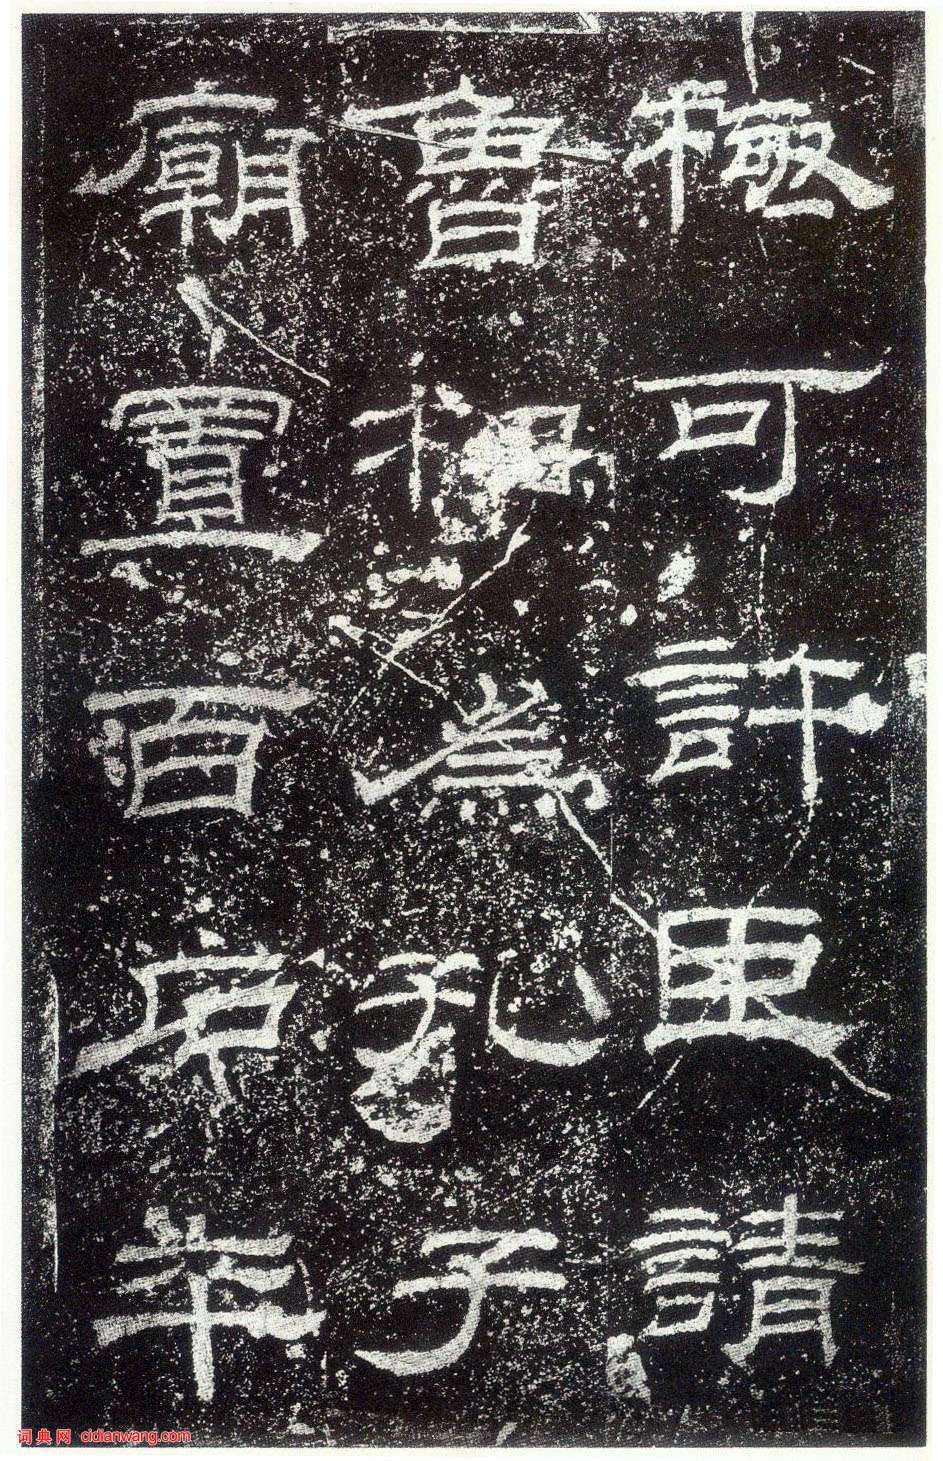 極可許臣請
魯相為孔子
廟置百石卒
词典网 cidianwang.com